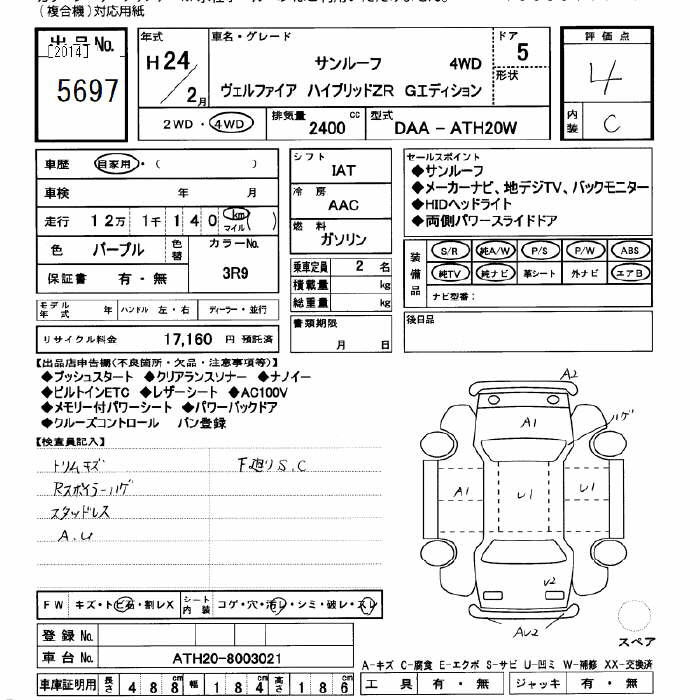 (複合機)対応用紙
出品No.
[2014]
5697
年式
H24/2月
車名・グレード
サンルーフ 4WD
ヴェルファイア ハイブリッドZR Gエディション
ドア
5
形状
評価点
4
内装
C
2WD・4WD
排気量
2400 cc
型式
DAA-ATH20W
車歴 自家用・( )
車検 年 月
走行 12万 1千 140 km マイル ( )
色 パープル
色替
カラーNo.
3R9
保証書 有・無
モデル年式 年 ハンドル 左・右 ディーラー・並行
リサイクル料金 17,160 円 預託済
シフト
IAT
冷房
AAC
燃料
ガソリン
乗車定員 2 名
積載量 kg
総重量 kg
書類期限
月 日
セールスポイント
◆サンルーフ
◆メーカーナビ、地デジTV、バックモニター
◆HIDヘッドライト
◆両側パワースライドドア
装備品
S/R 純A/W P/S P/W ABS
純TV 純ナビ 革シート 外ナビ エアB
ナビ型番:
後日品
【出品店申告欄(不良箇所・欠品・注意事項等)】
◆プッシュスタート ◆クリアランスソナー ◆ナノイー
◆ビルトインETC ◆レザーシート ◆AC100V
◆メモリー付パワーシート ◆パワーバックドア
◆クルーズコントロール バン登録
【検査員記入】
トリムキズ 下廻りS.C
Rスポイラーハゲ
スタッドレス
A.U
A2
ハゲ
A1
A1 U1 U1
U2
AU2
スペア
FW キズ・トビ石・割レX
シート内装 コゲ・穴・汚レ・シミ・破レ・スレ
登録No.
車台No. ATH20-8003021
車庫証明用 長さ 488 cm 幅 184 cm 高さ 186 cm
A-キズ C-腐食 E-エクボ S-サビ U-凹ミ W-補修 XX-交換済
工具 有・無 ジャッキ 有・無